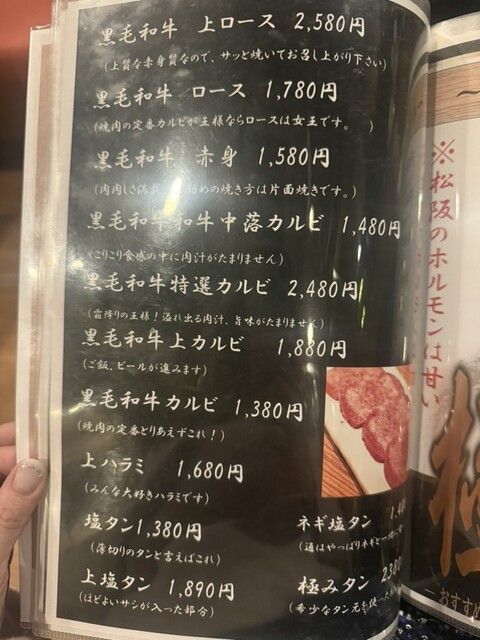 黒毛和牛 上ロース 2,580円
(上質な赤身質なので、サッと焼いてお召し上がり下さい)
黒毛和牛 ロース 1,780円
(焼肉の定番カルビが王様ならロースは女王です。 )
黒毛和牛 赤身 1,580円
(肉肉しさ満 めの焼き方は片面焼きです。)
黒毛和牛和牛中落カルビ 1,480円
(こりこり食感の中に肉汁がたまりません)
黒毛和牛特選カルビ 2,480円
(霜降りの王様!溢れ出る肉汁、旨味がたまりません)
黒毛和牛上カルビ 1,880円
(ご飯、ビールが進みます)
黒毛和牛カルビ 1,380円
(焼肉の定番とりあえずこれ!)
上ハラミ 1,680円
(みんな大好きハラミです)
塩タン1,380円
(薄切りのタンと言えばこれ)
上塩タン 1,890円
(ほどよいサシが入った部分)
ネギ塩タン
(通はやっぱりネギと一緒に
極みタン 2380
(希少なタン元を使った
※松阪のホルモンは甘い
極
おすすめ